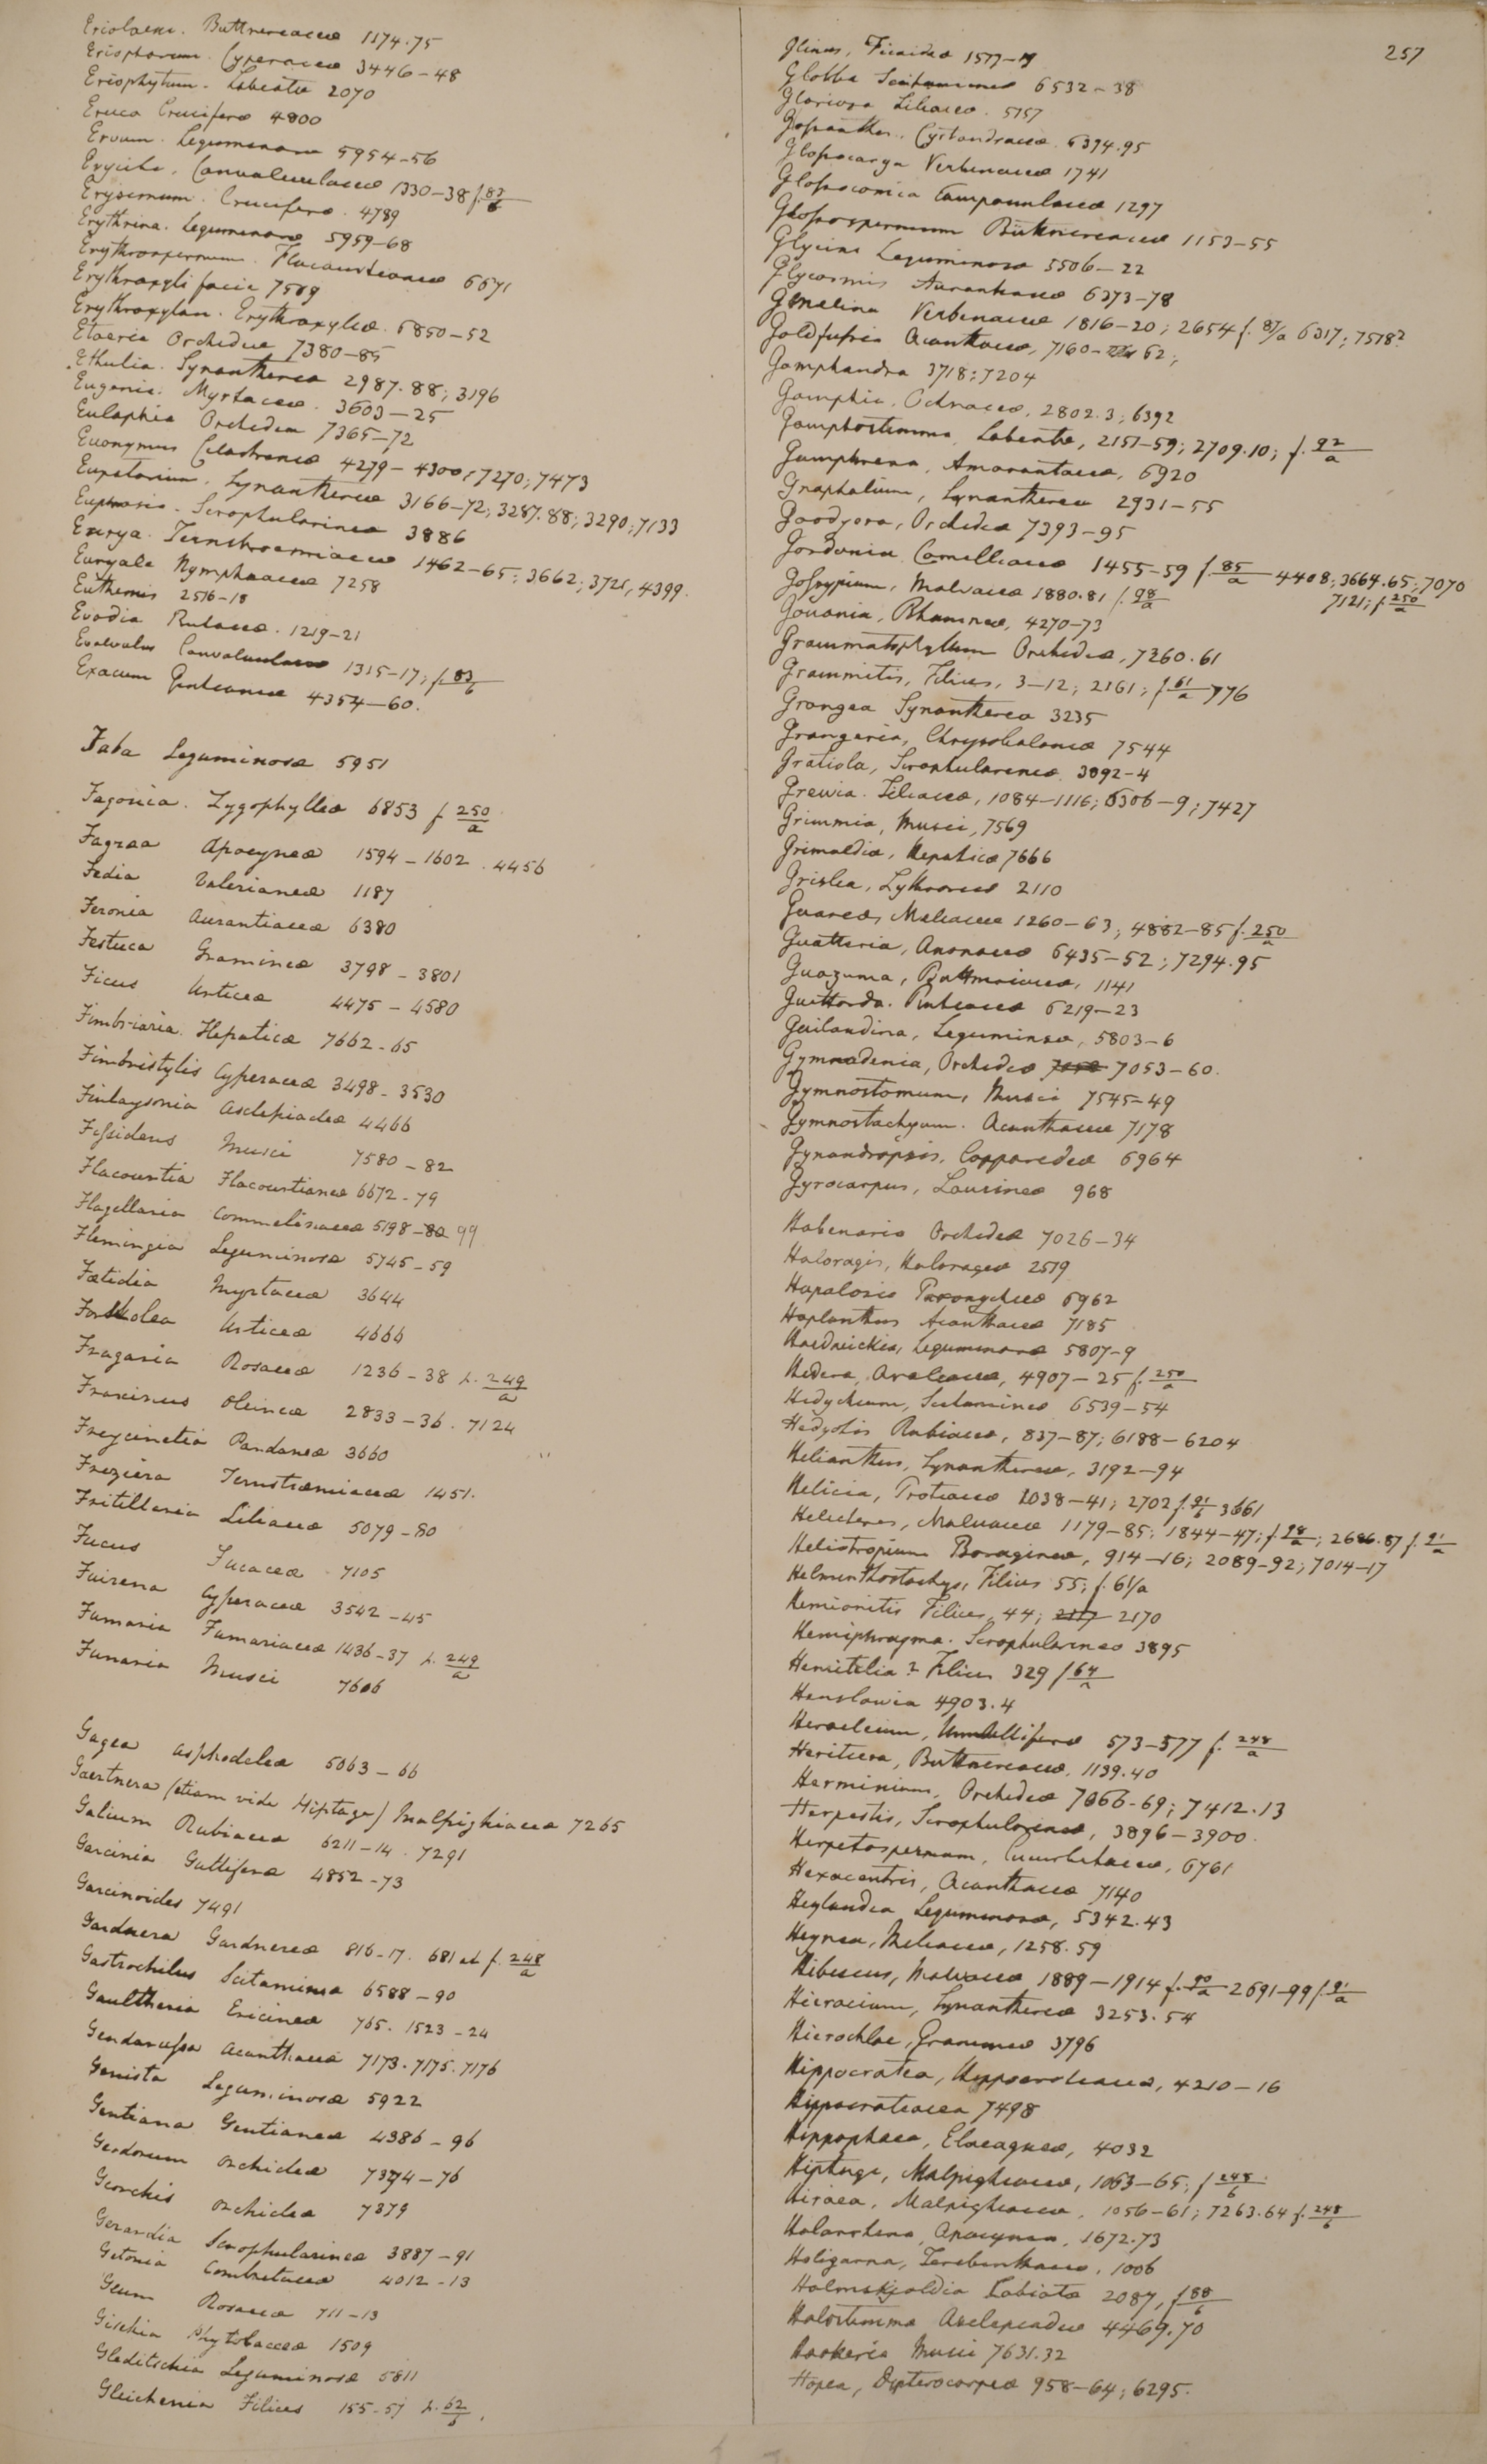 Eriolaena. Buttneriaceae 1174.75
Eriophorum. Cyperaceae 3446–48
Eriophytum. Labiatae 2070
Eruca Cruciferae 4800
Ervum. Leguminosae 5954–56
Erycibe. Convolvulaceae 1330–38 f. 83/b
Erysimum. Cruciferae. 4789
Erythrina. Leguminosae 5959–68
Erythrospermum. Flacourtianeae 6671
Erythroxyli facie 7509
Erythroxylon. Erythroxyleae. 6850–52
Etaeria Orchideae 7380–85
Ethulia. Synanthereae 2987.88; 3196
Eugenia. Myrtaceae. 3603–25
Eulophia Orchideae 7365–72
Euonymus Celastrineae 4279–4300; 7270; 7473
Eupatorium. Synanthereae 3166–72; 3287.88; 3290; 7133
Euphrasia. Scrophularineae 3886
Eurya. Ternstroemiaceae 1462–65; 3662; 3721, 4399.
Euryale Nymphaeaceae 7258
Euthemis 2516–18
Evodia Rutaceae. 1219–21
Evolvulus Convolvulaceae 1315–17; f. 83/b
Exacum Gentianeae 4354–60.
Faba Leguminosae 5951
Fagonia. Zygophylleae 6853 f 250/a
Fagraea Apocyneae 1594–1602. 4456
Fedia Valerianeae 1187
Feronia Aurantiaceae 6380
Festuca Gramineae 3798–3801
Ficus Urticeae 4475–4580
Fimbriaria. Hepaticae 7662–65
Fimbristylis Cyperaceae 3498–3530
Finlaysonia Asclepiadeae 4466
Fissidens Musci 7580–82
Flacourtia Flacourtianeae 6672–79
Flagellaria Commelinaceae 5198–80 99
Flemingia Leguminosae 5745–59
Faetidia Myrtaceae 3644
Forskolea Urticeae 4666
Fragaria Rosaceae 1236–38 f. 249/a
Fraxinus Oleineae 2833–36. 7124
Freycinetia Pandaneae 3660
Freziera Ternstroemiaceae 1451.
Fritillaria Liliaceae 5079–80
Fucus Fucaceae 7105
Fuirena Cyperaceae 3542–45
Fumaria Fumariaceae 1436–37 f. 249/a
Funaria Musci 7606
Gagea Asphodeleae 5063–66
Gaertnera (etiam vide Hiptage) Malpighiaceae 7265
Galium Rubiaceae 6211–14. 7291
Garcinia Guttiferae 4852–73
Garcinoides 7491
Gardnera Gardnereae 816–17. 681 et f. 248/a
Gastrochilus Scitamineae 6588–90
Gaultheria Ericineae 765. 1523–24
Gendarussa Acanthaceae 7173.7175.7176
Genista Leguminosae 5922
Gentiana Gentianeae 4386–96
Geodorum Orchideae 7374–76
Georchis Orchideae 7379
Gerardia Scrophularineae 3887–91
Getonia Combretaceae 4012–13
Geum Rosaceae 711–13
Gisekia Phytolacceae 1509
Gleditschia Leguminosae 5811
Gleichenia Filices 155–57 f. 62/b.
257
Glinus, Ficoideae 1577–79
Globba Scitamineae 6532–38
Gloriosa Liliaceae. 5157
Glossanthus. Cyrtandraceae. 6394.95
Glossocarya Verbenaceae 1741
Glossocomia Campanulaceae 1297
Glossospermum Büttneriaceae 1153–55
Glycine Leguminosae 5506–22
Glycosmis Aurantiaceae 6373–78
Gmelina Verbenaceae 1816–20; 2654 f. 87/a 6317; 7518?
Goldfussia Acanthaceae, 7160–62;
Gomphandra 3718; 7204
Gomphia, Ochnaceae, 2802.3; 6392
Gomphostemma, Labiatae, 2151–59; 2709.10; f. 92/a
Gomphrena, Amarantaceae, 6920
Gnaphalium, Synanthereae 2931–55
Goodyera, Orchideae 7393–95
Gordonia Camelliaceae 1455–59 f. 85/a 4408; 3664.65; 7070
7121; f. 250/a
Gossypium, Malvaceae 1880.81 f. 98/a
Gouania, Rhamneae, 4270–73
Grammatophyllum Orchideae, 7360.61
Grammitis, Filices, 3–12; 2161; f. 61/a 776
Grangea Synanthereae 3235
Grangeria, Chrysobalaneae 7544
Gratiola, Scrophularineae. 3892–4
Grewia. Tiliaceae, 1084–1116; 6306–9; 7427
Grimmia, Musci, 7569
Grimaldia, Hepaticae 7666
Grislea, Lythrarieae 2110
Guarea, Meliaceae 1260–63; 4882–85 f. 250/a
Guatteria, Anonaceae 6435–52; 7294.95
Guazuma, Buttneriaceae, 1141
Guettarda. Rubiaceae 6219–23
Guilandina, Leguminosae, 5803–6
Gymnadenia, Orchideae 7053–60.
Gymnostomum, Musci 7545–49
Gymnostachyum. Acanthaceae 7178
Gynandropsis, Capparideae 6964
Gyrocarpus, Laurineae 968
Habenaria Orchideae 7026–34
Haloragis, Halorageae 2519
Hapalosia Paronychieae 6962
Haplanthus Acanthaceae 7185
Hardwickia, Leguminosae 5807–9
Hedera, Araliaceae, 4907–25 f. 250/a
Hedychium, Scitamineae 6539–54
Hedyotis Rubiaceae, 837–87; 6188–6204
Helianthus, Synanthereae, 3192–94
Helicia, Proteaceae 2038–41; 2702 f. 91/b 3661
Helicteres, Malvaceae 1179–85; 1844–47; f. 98/a; 2686.87 f. 91/a
Heliotropium Boragineae, 914–16; 2089–92; 7014–17
Helminthostachys, Filices 55; f. 61/a
Hemionitis Filices, 44; 2117 2170
Hemiphragma. Scrophularineae 3895
Hemitelia? Filices 329 f 64/a
Henslowia 4903.4
Heracleum, Umbelliferae 573–577 f. 248/a
Heritiera, Buttneriaceae, 1139.40
Herminium, Orchideae 7066–69; 7412.13
Herpestis, Scrophularineae, 3896–3900.
Herpetospermum, Cucurbitaceae, 6761
Hexacentris, Acanthaceae 7140
Heylandia Leguminosae, 5342.43
Heynea, Meliaceae, 1258.59
Hibiscus, Malvaceae 1889–1914 f. 90/a 2691–99 f. 91/a
Hieracium, Synanthereae 3253.54
Hierochloe, Gramineae 3796
Hippocratea, Hippocrateaceae, 4210–16
Hippocrateacea 7498
Hippophaea, Elaeagneae, 4032
Hiptage, Malpighiaceae, 1063–65; f 248/b
Hiraea, Malpighiaceae, 1056–61; 7263.64 f. 248/b
Holarrhena, Apocyneae, 1672.73
Holigarna, Terebinthaceae, 1006
Holmskjoldia Labiatae 2087, f 88/b
Holostemma Asclepiadeae 4469.70
Hookeria Musci 7631.32
Hopea, Dipterocarpeae 958–64; 6295.